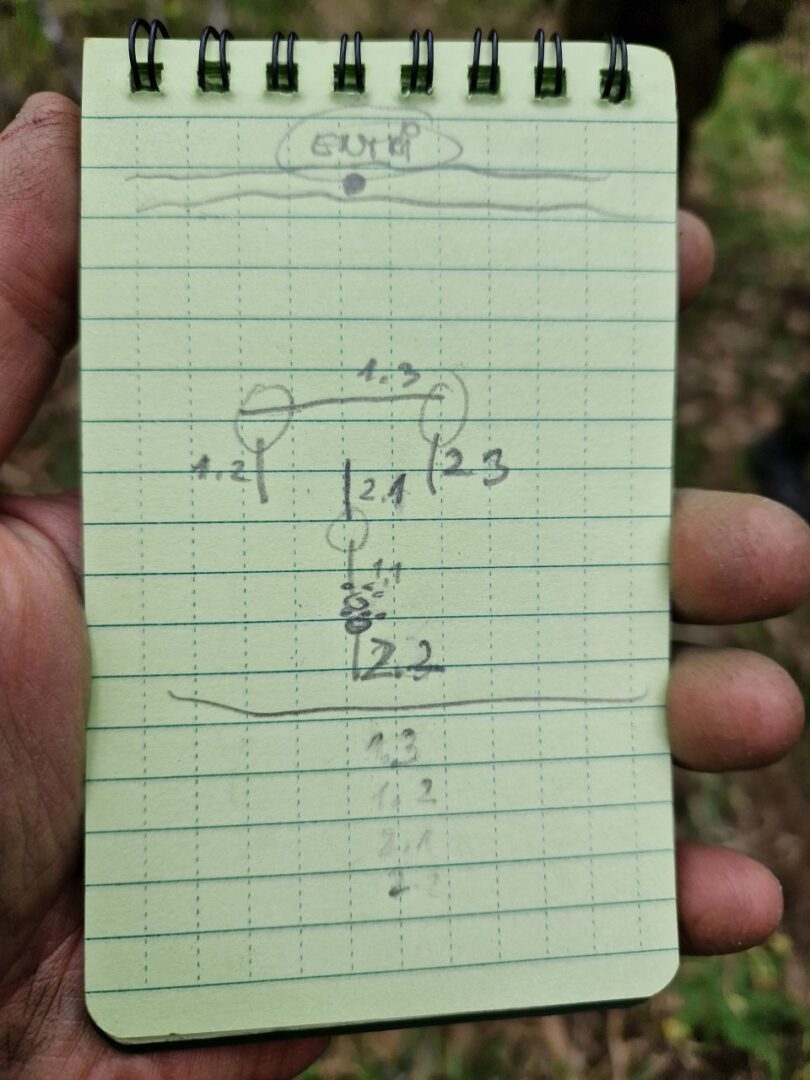 1.3
1.2
2.3
2.1
1.1
2.2
1.3
1.2
2.1
2.2